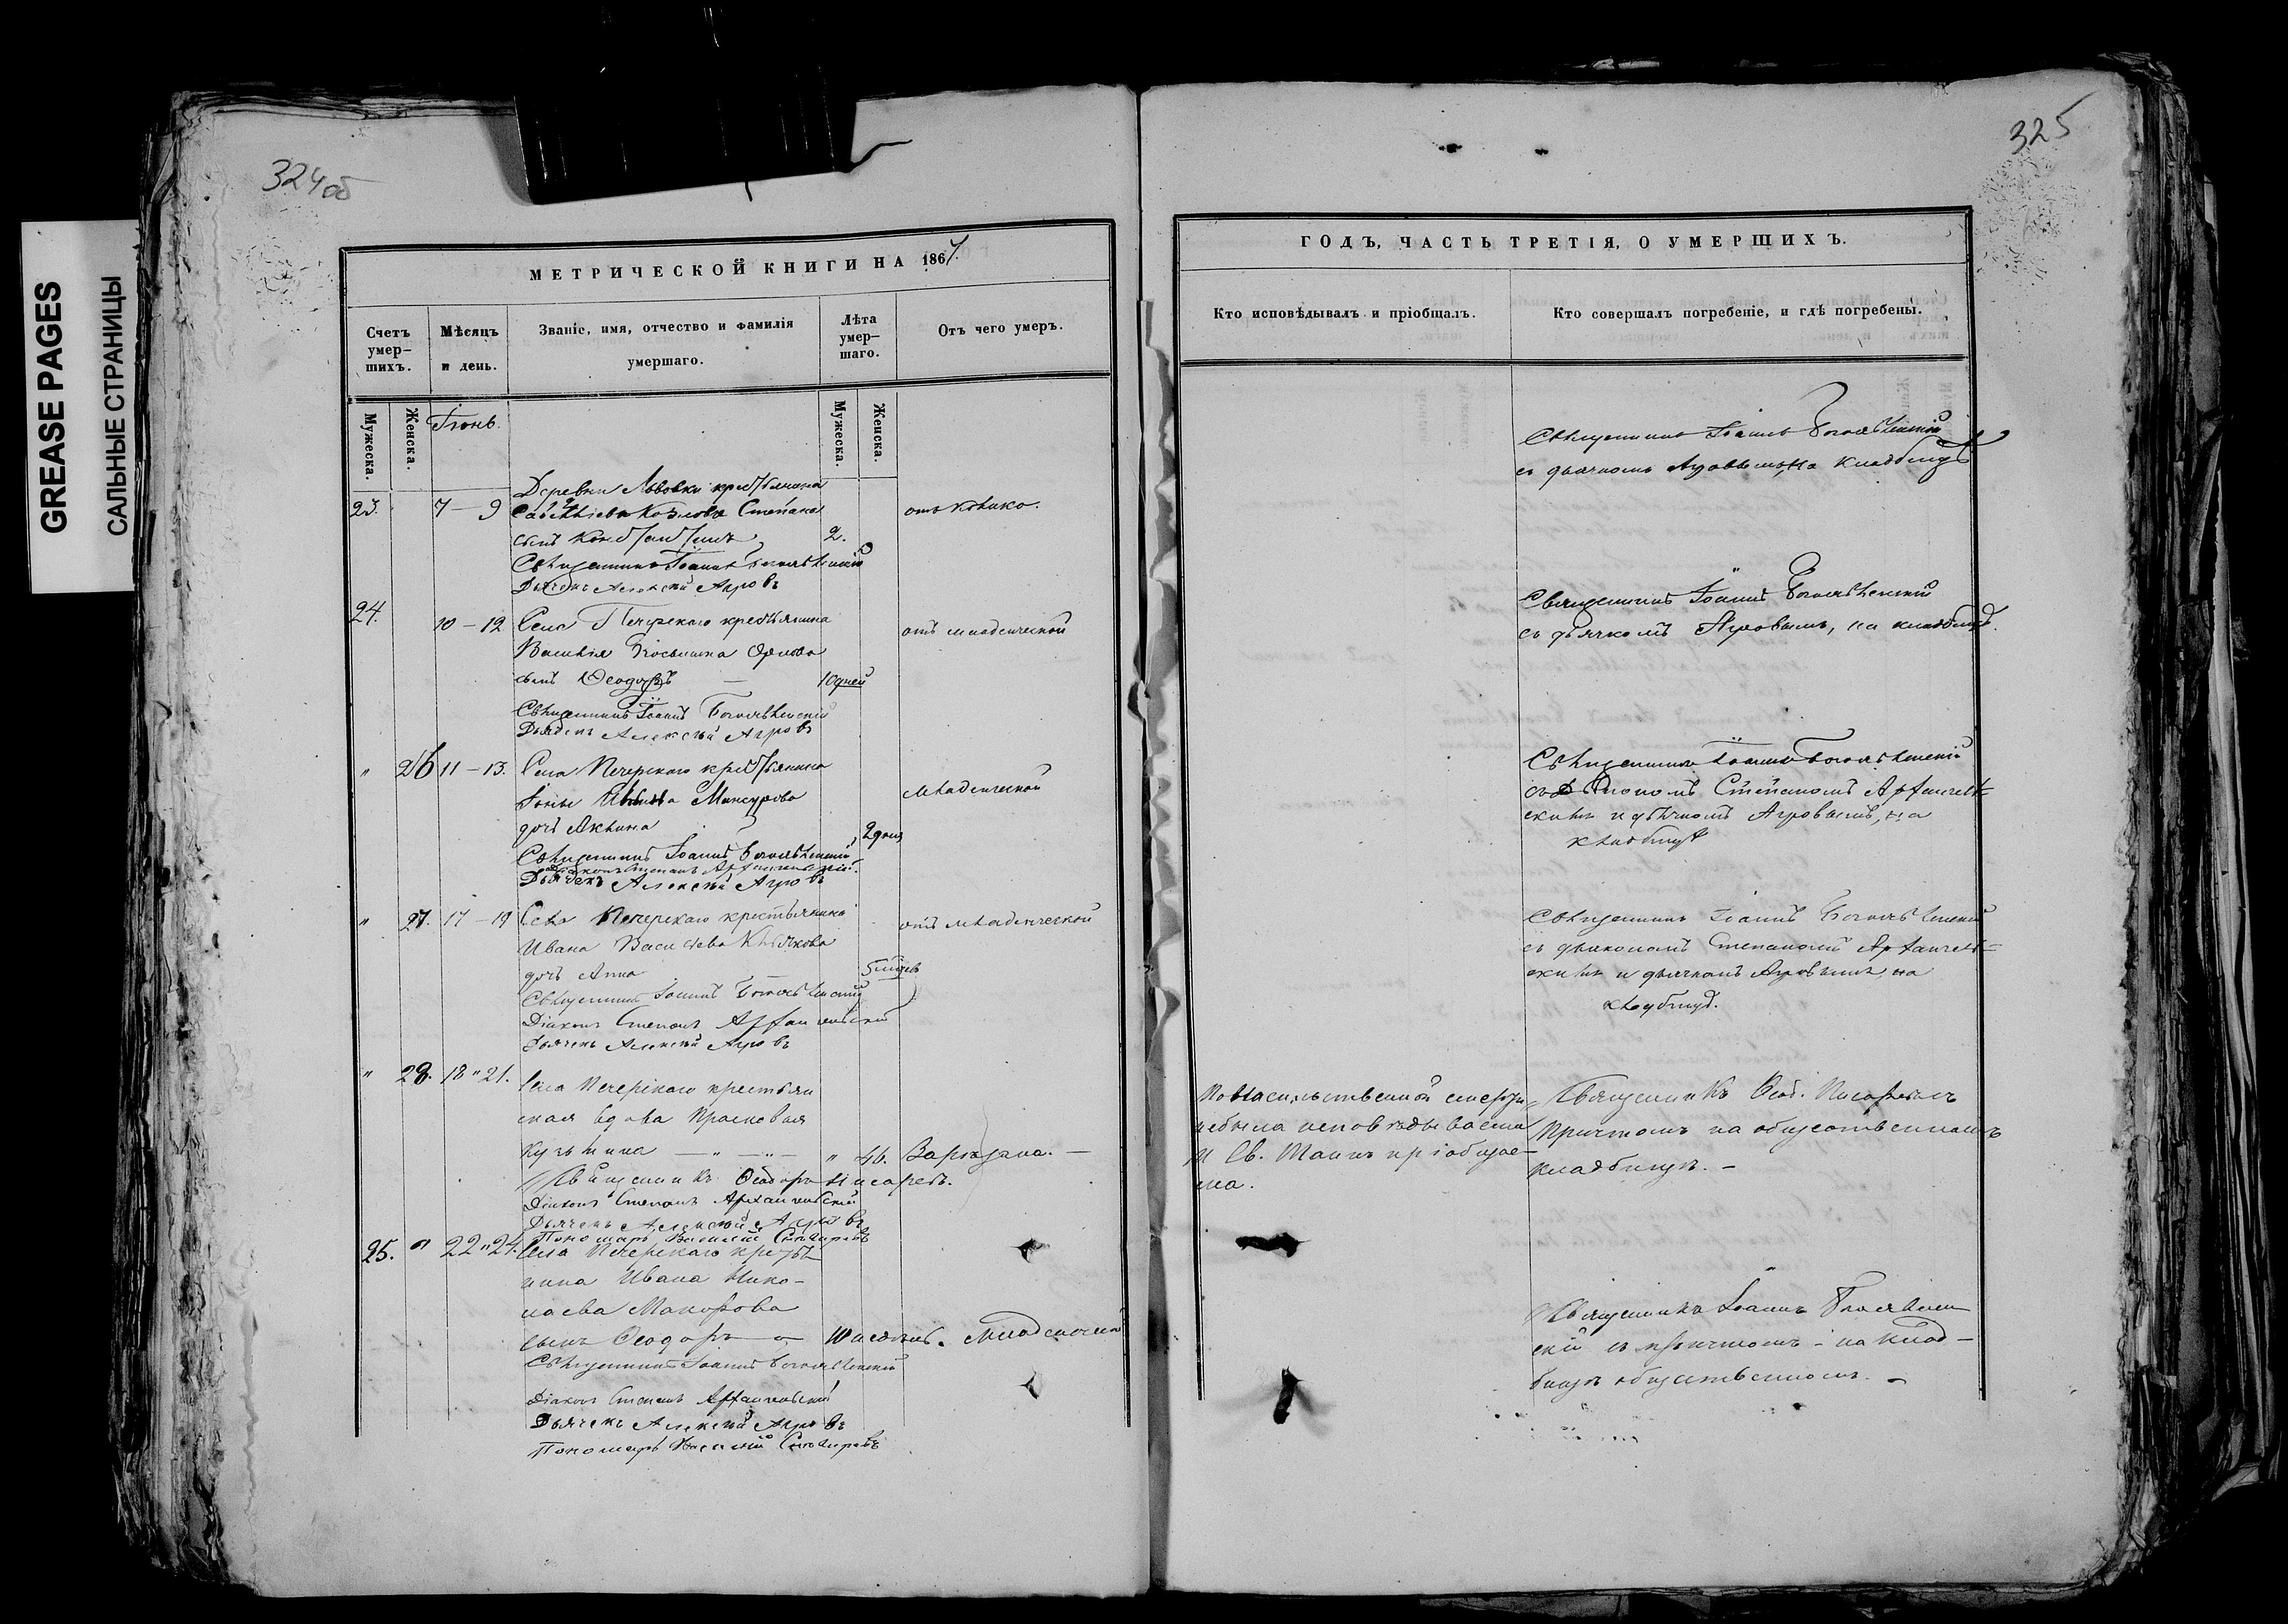 GREASE PAGES
САЛЬНЫЕ СТРАНИЦЫ
324об
МЕТРИЧЕСКОЙ КНИГИ НА 1867.
Счетъ умер-шихъ.
Мѣсяцъ и день.
Званіе, имя, отчество и фамилія умершаго.
Лѣта умер-шаго.
Отъ чего умеръ.
Мужеска.
Женска.
Мужеска.
Женска.
Іюнь.
23. 7 — 9
Деревни Львовки крестьянина
Козлова Степана
сынъ 2.
Священникъ Іоаннъ Богоявленскій
Дьячекъ Алексѣй Агровъ
24. 10 — 12
Села Печерскаго крестьянина
Василія Орлова
сынъ Ѳеодоръ — 10 дней
отъ младенческой
Священникъ Іоаннъ Богоявленскій
Дьячекъ Алексѣй Агровъ
" 26 11 — 13.
Села Печерскаго крестьянина
Іоны Мансурова
дочь Акилина 2 дня
младенческой
Священникъ Іоаннъ Богоявленскій
Діаконъ Степанъ Архангельскій.
Дьячекъ Алексѣй Агровъ
" 27. 17 — 19
Села Печерскаго крестьянина
Ивана Васильева
дочь Анна
отъ младенческой
Священникъ Іоаннъ Богоявленскій
Діаконъ Степанъ Архангельскій
Дьячекъ Алексѣй Агровъ
" 28. 18 " 21.
Села Печерскаго крестьян
ская вдова Прасковья
Кузьмина — " — " — " 46. Зарѣзана. —
Священникъ Ѳеодоръ Писаревъ.
Діаконъ Степанъ Архангельскій
Дьячекъ Алексѣй Агровъ
Пономарь Василій
25. " 22 " 24.
Села Печерскаго крестья
нина Ивана Нико-
лаева Макарова
сынъ Ѳеодоръ
Священникъ Іоаннъ Богоявленскій
Діаконъ Степанъ Архангельскій
Дьячекъ Алексѣй Агровъ
Пономарь Василій
325
ГОДЪ, ЧАСТЬ ТРЕТІЯ, О УМЕРШИХЪ.
Кто исповѣдывалъ и пріобщалъ.
Кто совершалъ погребеніе, и гдѣ погребены.
Священникъ Іоаннъ Богоявленскій
съ дьячкомъ Агровымъ, на кладбищѣ
Священникъ Іоаннъ Богоявленскій
съ дьячкомъ Агровымъ, на кладбищѣ.
Священникъ Іоаннъ Богоявленскій
съ Діакономъ Степаномъ Архангель-
скимъ и дьячкомъ Агровымъ, на
кладбищѣ
Священникъ Іоаннъ Богоявленскій
съ діакономъ Степаномъ Архангель=
скимъ и дьячкомъ Агровымъ, на
кладбищѣ.
По насильственной смерти
небыла исповѣдываема
и Св. Таинъ пріобщае-
ма.
Священникъ Ѳеод. Писаревъ съ
Причтомъ на общественномъ
кладбищѣ. —
Священникъ Іоаннъ Богоявлен
скій съ причтомъ - на клад-
бищѣ общественномъ. —